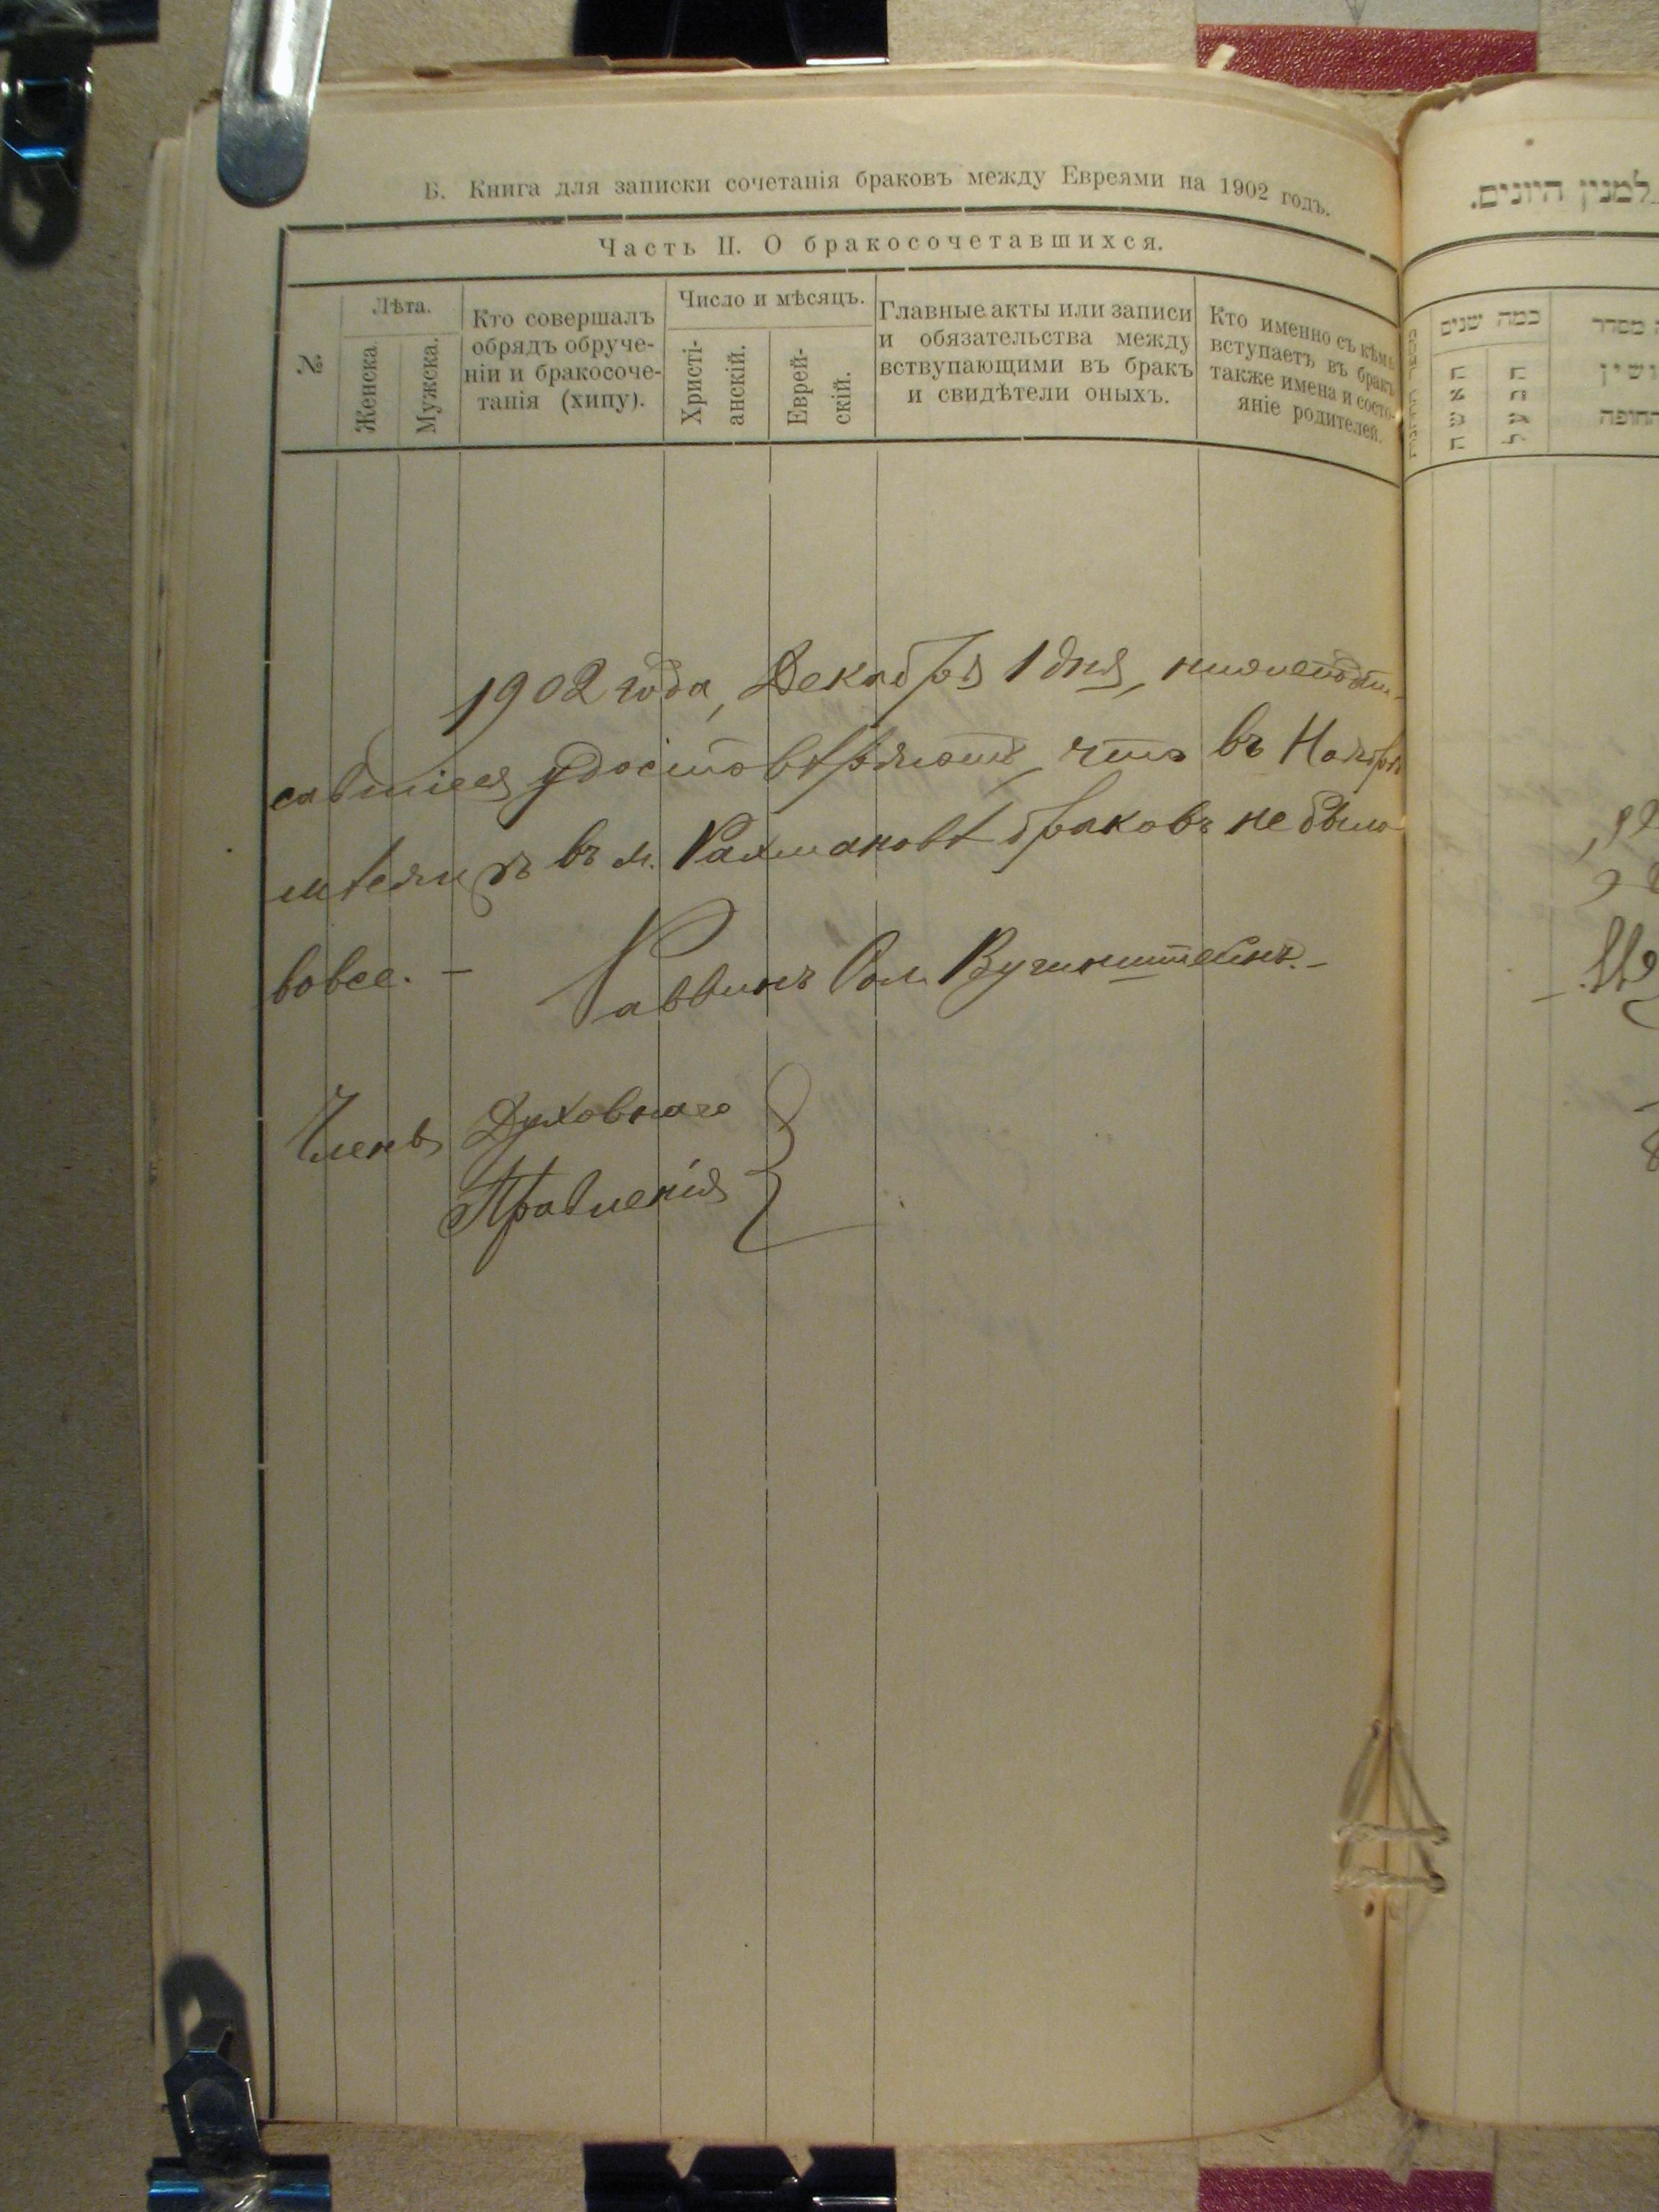 Б. Книга для записки сочетанія браковъ между Евреями на 1902 годъ.
Часть II. О бракосочетавшихся.
№
Лѣта.
Женска
Мужска.
Кто совершалъ
обрядъ обруче-
ніи и бракосоче-
танія (хипу).
Число и мѣсяцъ.
Христі-
анскій.
Еврей-
скій.
Главные акты или записи
и обязательства между
вствупающими въ бракъ
и свидѣтели оныхъ.
Кто именно съ кѣмъ
вступаетъ въ бракъ
также имена и состо-
яніе родителей.
1902 года, Декабря 1 дня, нижеподпи-
савшіеся удостовѣряютъ, что въ Ноябрѣ
мѣсяцѣ въ м. Рахмановѣ браковъ не было
вовсе. –
Раввинъ
Члены Духовнаго
Правленія
למנין היונים.
כמה שנים
מסדר
החופה